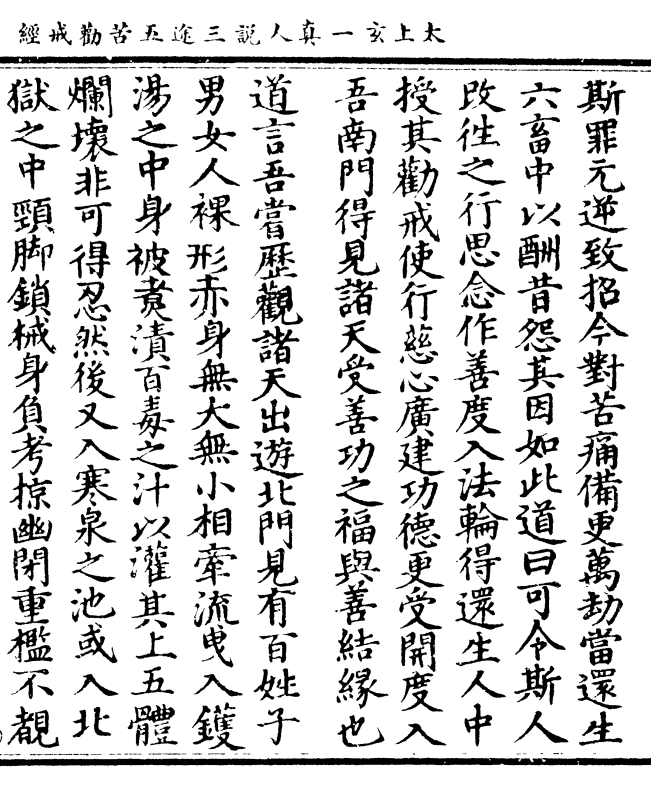 太上玄一真人說三途五苦勸戒經
斯罪元逆致招今對苦痛備更萬劫當還生
六畜中以酬昔怨其因如此道曰可令斯人
改往之行思念作善度入法輪得還生人中
授其勸戒使行慈心廣建功德更受開度入
吾南門得見諸天受善功之福與善結緣也
道言吾嘗歷觀諸天出遊北門見有百姓子
男女人裸形赤身無大無小相牽流曳入鑊
湯之中身被煑漬百毒之汁以灌其上五體
爛壞非可得忍然後又入寒泉之池或入北
獄之中頸脚鎖械身負考掠幽閉重檻不覩